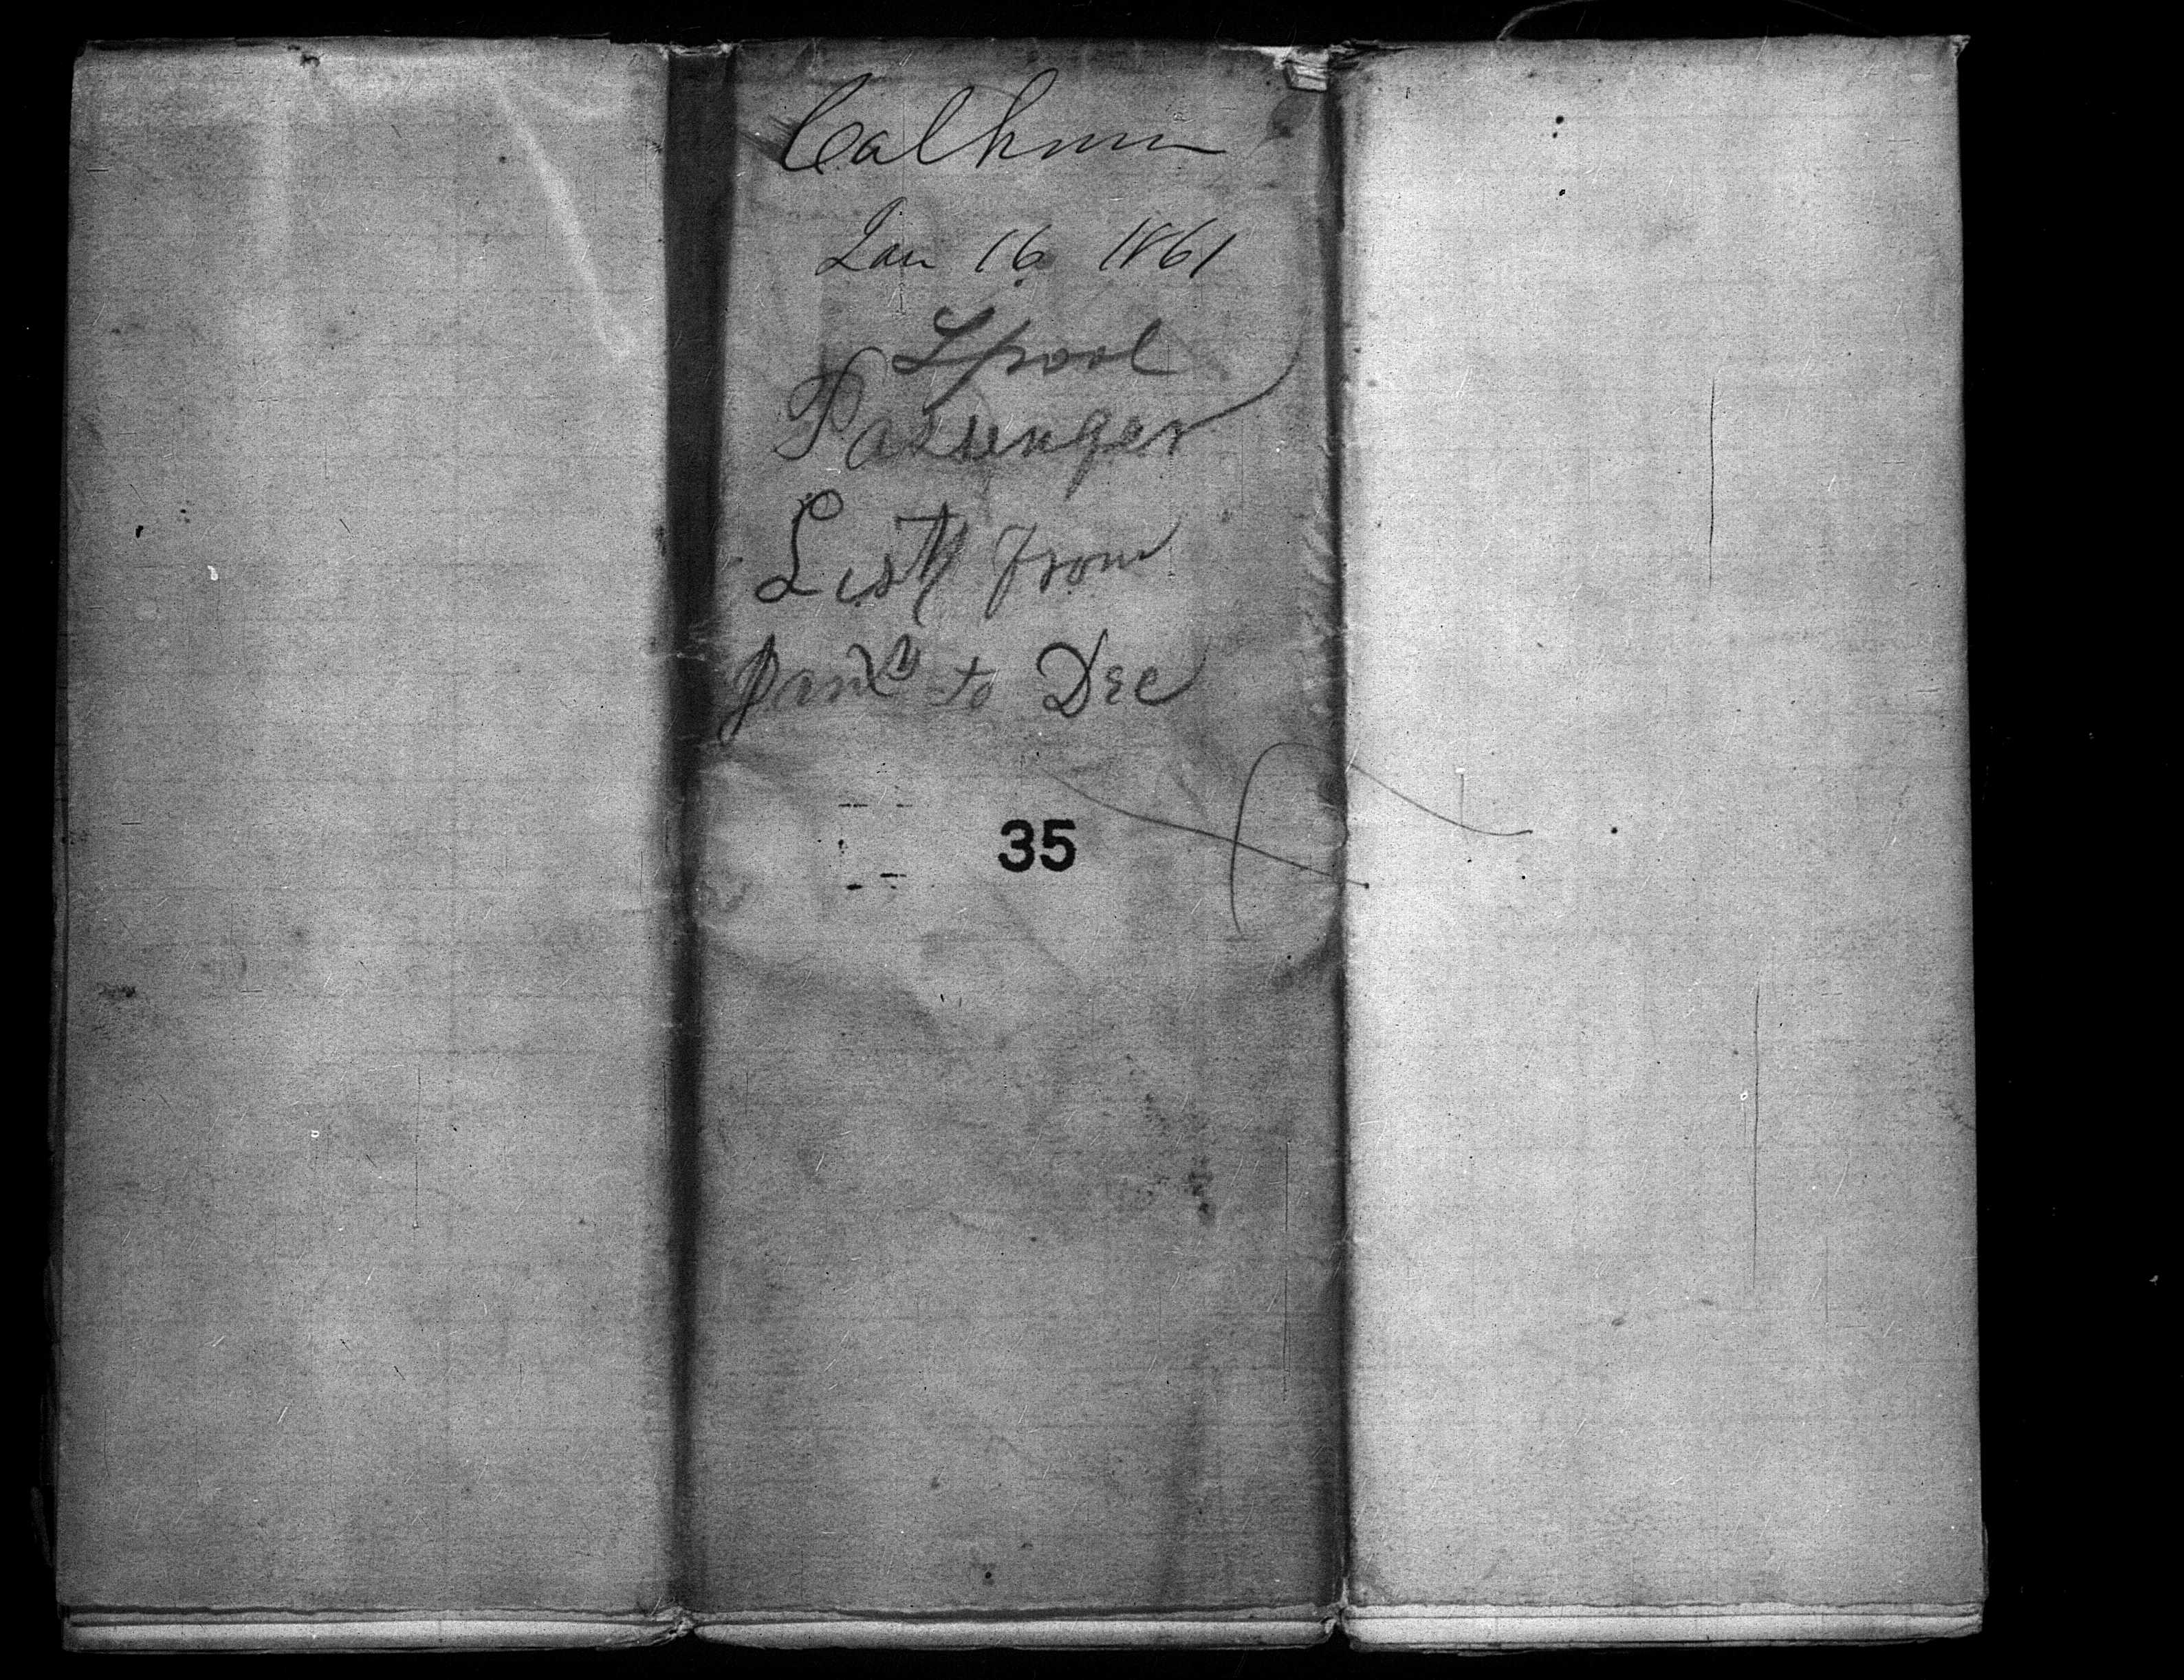 Calhoun
Jan 16 1861
Lpool
Passenger
List from
Jany to Dec
35